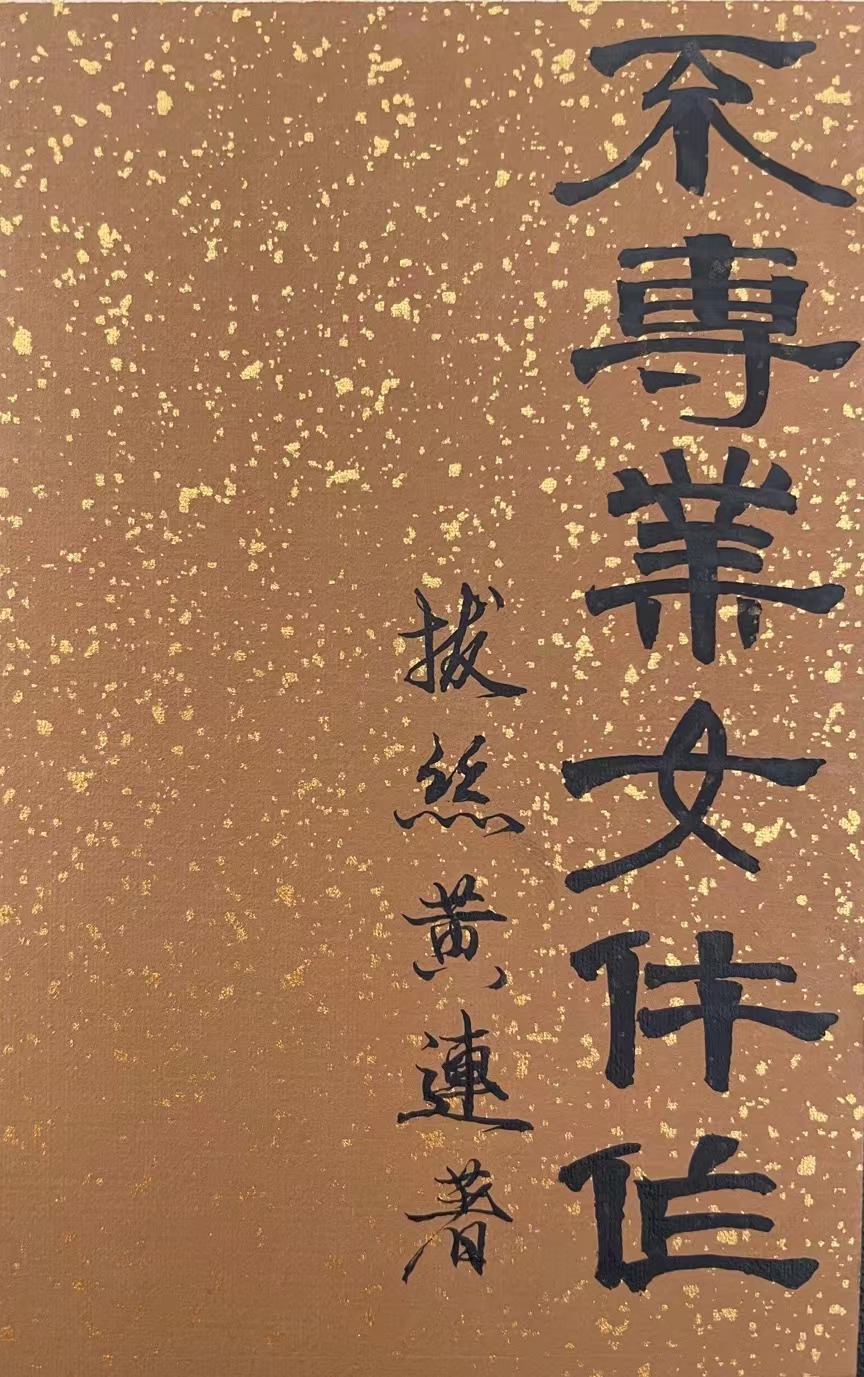 不專業女仵作
拔絲黃連著